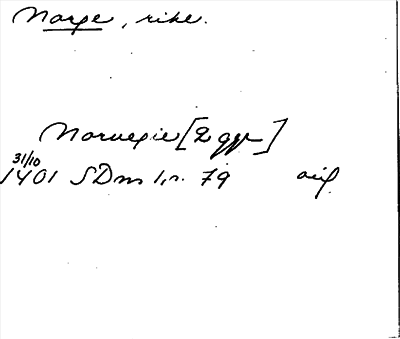 Norge, rike.
Noruegie [2 ggr]
31/10
1401 SDns 1, s. 79 orig